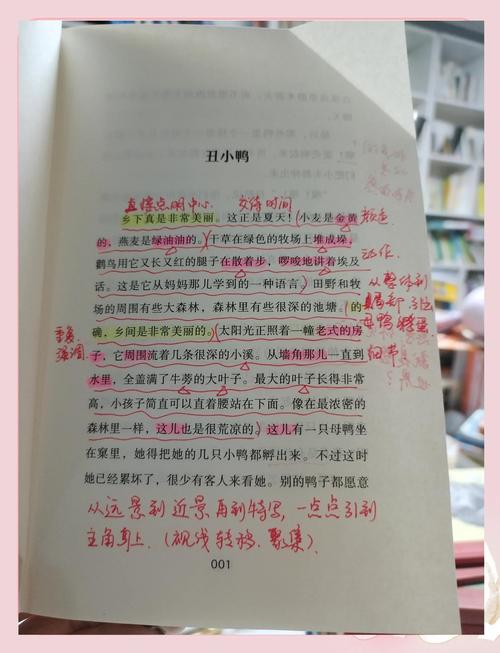 丑小鸭
直接点明中心. 交待时间
乡下真是非常美丽。这正是夏天！小麦是金黄
的，燕麦是绿油油的。干草在绿色的牧场上堆成垛，
鹳鸟用它又长又红的腿子在散着步，啰唆地讲着埃及
话。这是它从妈妈那儿学到的一种语言。田野和牧
场的周围有些大森林，森林里有些很深的池塘。的
确，乡间是非常美丽的。太阳光正照着一幢老式的房
子，它周围流着几条很深的小溪。从墙角那儿一直到
水里，全盖满了牛蒡的大叶子。最大的叶子长得非常
高，小孩子简直可以直着腰站在下面。像在最浓密的
森林里一样，这儿也是很荒凉的。这儿有一只母鸭坐
在窠里，她得把她的几只小鸭都孵出来。不过这时
她已经累坏了，很少有客人来看她。别的鸭子都愿意
颜色
动作.
从整体到
局部 引出
母鸭
细节
重复
强调
从远景到近景再到特写，一点点引到
主角身上.（视线转移、聚集）.
001